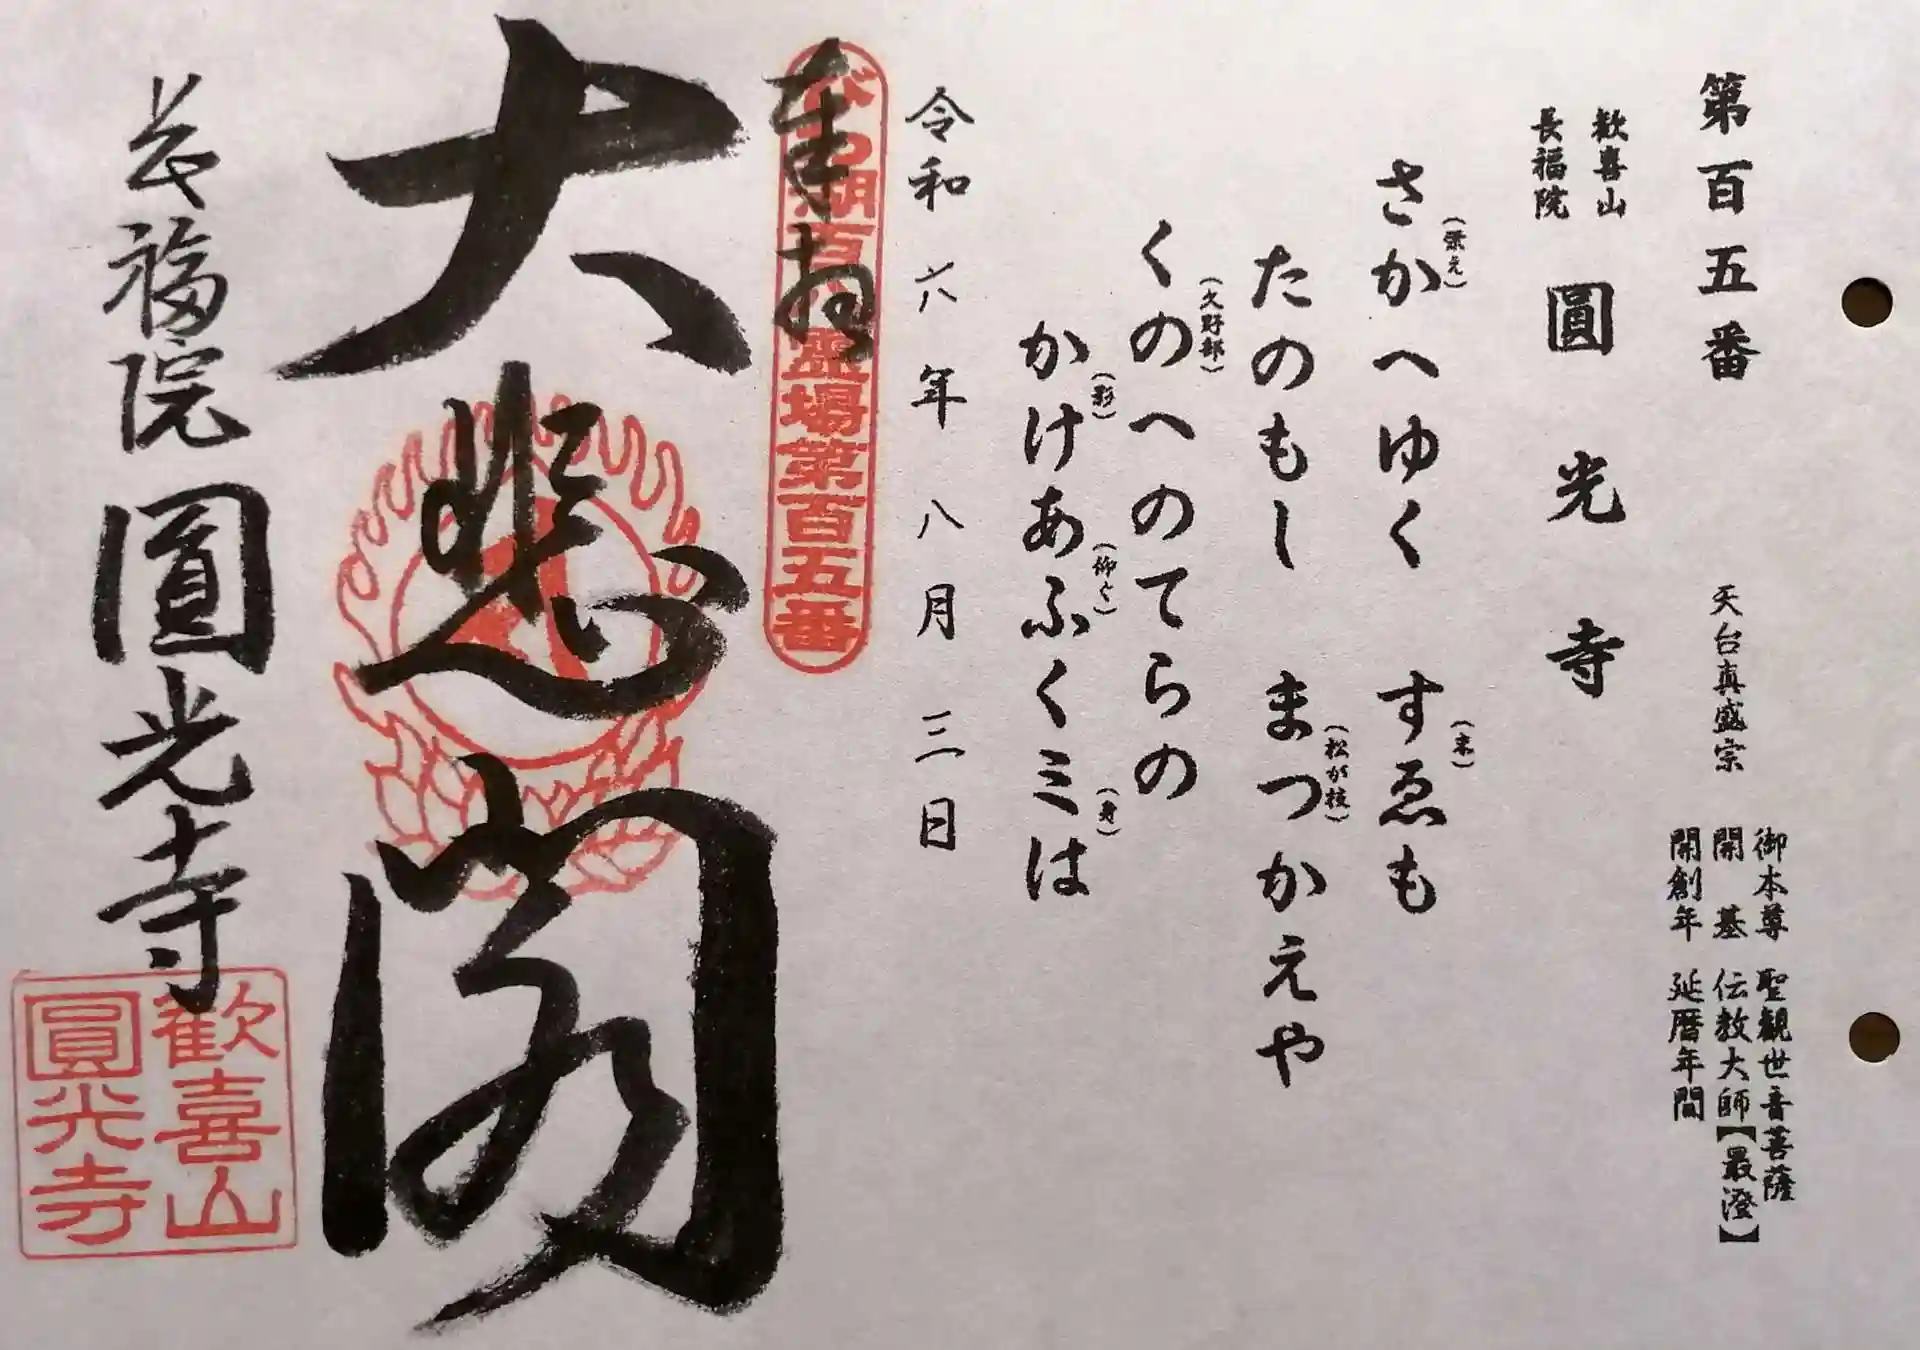 第百五番
天台真盛宗
御本尊 聖観世音菩薩
開 基 伝教大師【最澄】
開創年 延暦年間
歓喜山
長福院
圓光寺
さかへゆく すゑも
(栄え) (末)
たのもし まつかえや
(松が枝)
くのへのてらの
(久野部)
かけあふくミは
(影) (仰ぐ) (身)
令和六年八月三日
奉拝
びわ湖百八霊場第百五番
大悲閣
長福院 圓光寺
歓喜山
圓光寺